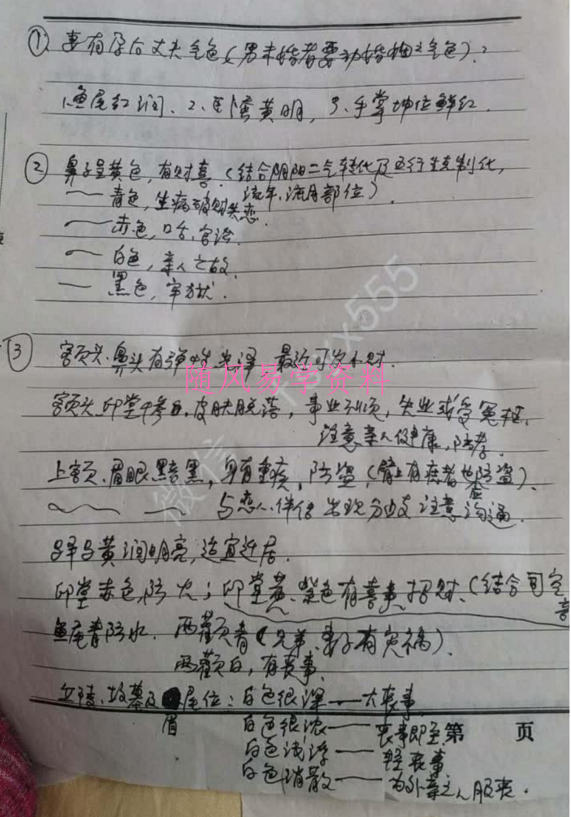 ① 妻有孕后丈夫气色(男未婚者要动婚姻之气色):
1.鱼尾红润、2、卧蚕黄明,3、手掌坤位鲜红.
② 鼻子呈黄色,有财喜(结合阴阳二气转化及五行生克制化,
—— 青色,生病破财失恋. 流年,流月部位)
—— 赤色,口舌、官讼
—— 白色,亲人之故.
— 黑色,牢狱.
③ 额头、鼻头有弹性光泽 最近可发小财.
随风易学资料
额头、印堂中苍白,皮肤脱落,事业不顺,失业或受冤枉.
注意亲人健康,防孝
上额、眉眼黯黑,身有重疾,防盗(肾上有疾者也防盗).
与恋人、伴侣出现分歧 注意沟通.
驿马黄润明亮,适宜迁居.
印堂赤色,防火;印堂黄、紫色有喜事、招财.(结合司空
鱼尾青防水. 两颧青(兄弟、妻子有灾祸).
两颧白,有丧事.
丘陵、坟墓及眉尾位:白色很深——大丧事
白色很浓——丧事即至 第 页
白色浅浮——轻丧事
白色消散——为外亲之人服丧.